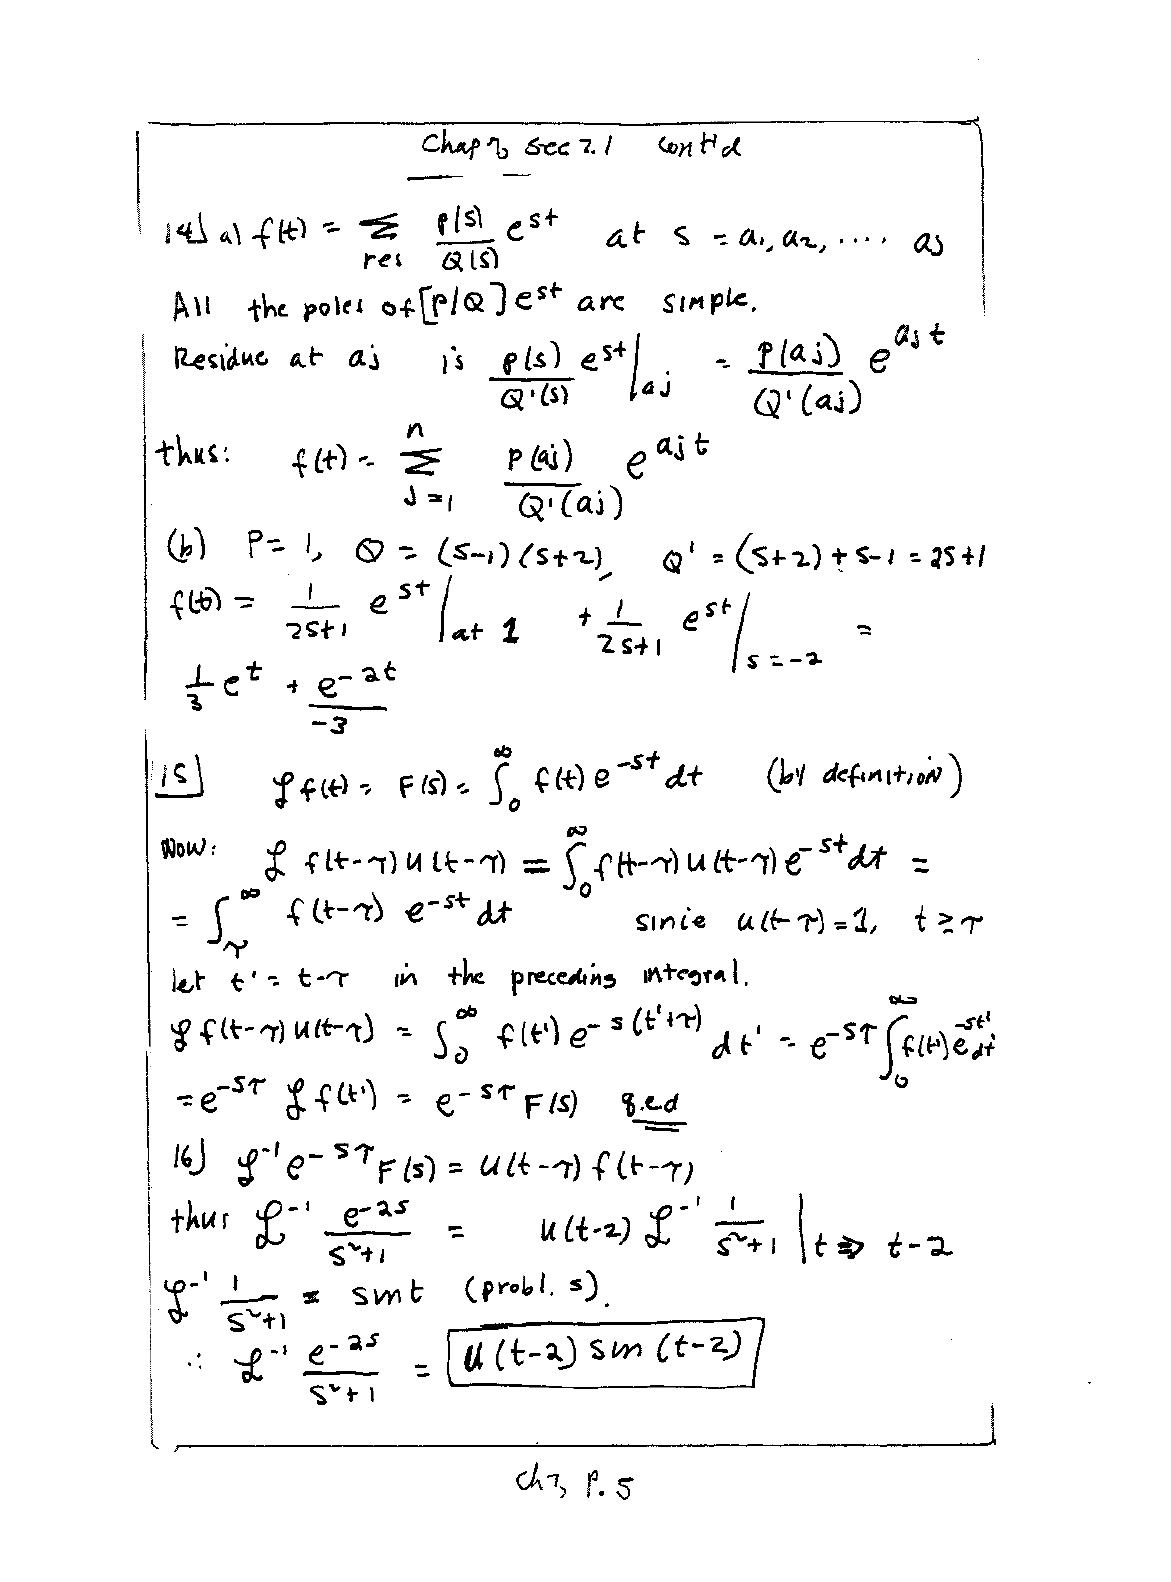 Chap 7, Sec 7.1 cont'd
14] a) f(t) = Σ res P(s)/Q(s) e^{st} at s = a₁, a₂, .... aj
All the poles of [P/Q] e^{st} are simple.
Residue at aj is P(s)/Q'(s) e^{st} |_{aj} = P(aj)/Q'(aj) e^{aj t}
thus: f(t) = Σ_{j=1}^{n} P(aj)/Q'(aj) e^{aj t}
(b) P = 1, Q = (s-1)(s+2), Q' = (s+2) + s-1 = 2s+1
f(t) = 1/(2s+1) e^{st} |_{at 1} + 1/(2s+1) e^{st} |_{s=-2} =
1/3 e^t + e^{-2t}/-3
15] ℒ f(t) = F(s) = ∫_0^∞ f(t) e^{-st} dt (by definition)
Now: ℒ f(t-τ) u(t-τ) = ∫_0^∞ f(t-τ) u(t-τ) e^{-st} dt =
= ∫_τ^∞ f(t-τ) e^{-st} dt since u(t-τ) = 1, t ≥ τ
let t' = t-τ in the preceding integral.
ℒ f(t-τ) u(t-τ) = ∫_0^∞ f(t') e^{-s(t'+τ)} dt' = e^{-sτ} ∫_0^∞ f(t') e^{-st'} dt'
= e^{-sτ} ℒ f(t') = e^{-sτ} F(s) q.e.d
16] ℒ^{-1} e^{-sτ} F(s) = u(t-τ) f(t-τ)
thus ℒ^{-1} e^{-2s}/(s²+1) = u(t-2) ℒ^{-1} 1/(s²+1) | t ⇒ t-2
ℒ^{-1} 1/(s²+1) = sin t (probl. 5).
∴ ℒ^{-1} e^{-2s}/(s²+1) = u(t-2) sin (t-2)
ch 7, p. 5